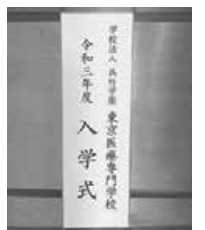 学校法人 呉竹学園 東京医療専門学校
令和三年度 入学式